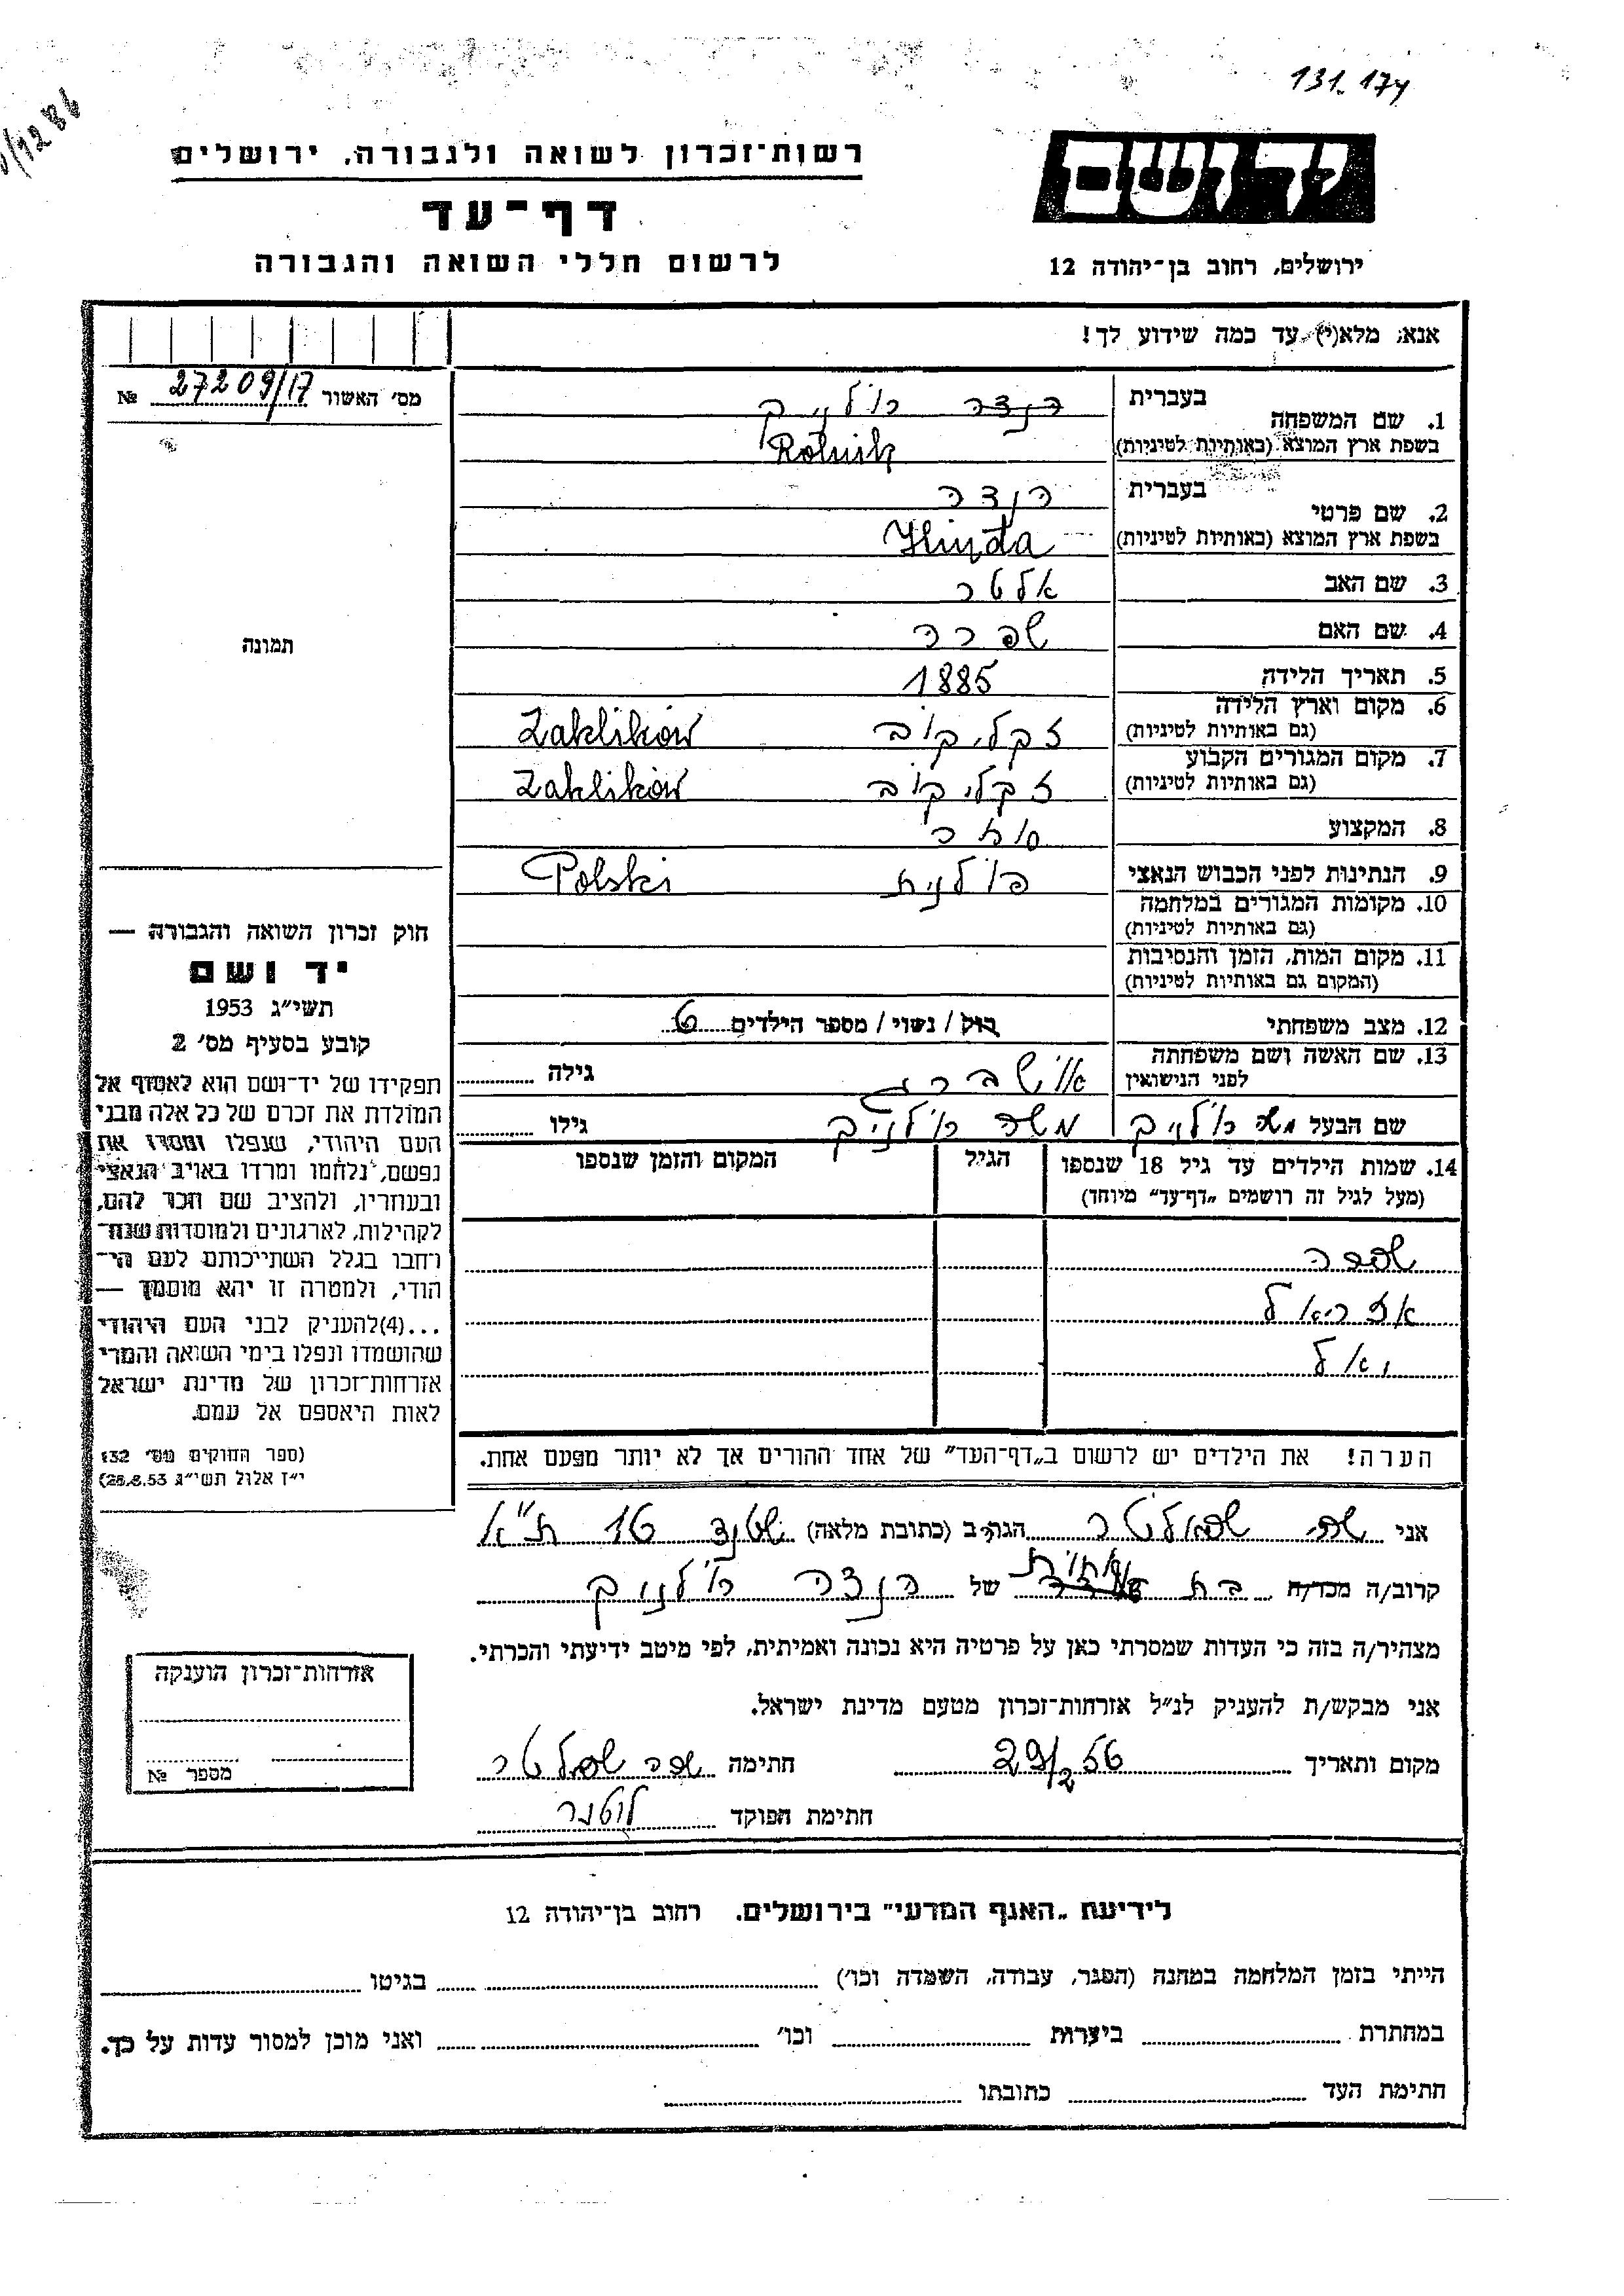 131.174
רשות־זכרון לשואה ולגבורה, ירושלים
יד ושם
דף־עד
לרשום חללי השואה והגבורה
ירושלים, רחוב בן־יהודה 12
אנא, מלא(י) עד כמה שידוע לך!
מס׳ האשור 27209/17 №
1. שם המשפחה
בעברית הנדה רולניק
בשפת ארץ המוצא (באותיות לטיניות) Rolnik
2. שם פרטי
בעברית הנדה
בשפת ארץ המוצא (באותיות לטיניות) Hinda
3. שם האב אלטר
4. שם האם שפרה
5. תאריך הלידה 1885
6. מקום וארץ הלידה
(גם באותיות לטיניות) זקליקוב Zaklików
7. מקום המגורים הקבוע
(גם באותיות לטיניות) זקליקוב Zaklików
8. המקצוע סוחר
9. הנתינות לפני הכבוש הנאצי פולנית Polski
10. מקומות המגורים במלחמה
(גם באותיות לטיניות)
11. מקום המות, הזמן והנסיבות
(המקום גם באותיות לטיניות)
12. מצב משפחתי רוק / נשוי / מספר הילדים 6
13. שם האשה ושם משפחתה
לפני הנישואין גילה
שם הבעל משה רולניק משה רולניק גילו
14. שמות הילדים עד גיל 18 שנספו
(מעל לגיל זה רושמים „דף־עד״ מיוחד)
הגיל
המקום והזמן שנספו
עזריאל
יואל
הערה! את הילדים יש לרשום ב„דף־העד״ של אחד ההורים אך לא יותר מפעם אחת.
תמונה
חוק זכרון השואה והגבורה —
יד ושם
תשי״ג 1953
קובע בסעיף מס׳ 2
תפקידו של יד־ושם הוא לאסוף אל
המולדת את זכרם של כל אלה מבני
העם היהודי, שנפלו ומסרו את
נפשם, נלחמו ומרדו באויב הנאצי
ובעוזריו, ולהציב שם וזכר להם,
לקהילות, לארגונים ולמוסדות שנח־
רחבו בגלל השתייכותם לעם הי־
הודי, ולמטרה זו יהא מוסמך —
...(4)להעניק לבני העם היהודי
שהושמדו ונפלו בימי השואה והמרי
אזרחות־זכרון של מדינת ישראל
לאות היאספם אל עמם.
(ספר החוקים מס׳ 132
י״ז אלול תשי״ג 28.8.53)
אני הגר/ה ב (כתובת מלאה) שטנד 16 ת״א
קרוב/ה מכר/ה בת אחות של הנדה רולניק
מצהיר/ה בזה כי העדות שמסרתי כאן על פרטיה היא נכונה ואמיתית, לפי מיטב ידיעתי והכרתי.
אני מבקש/ת להעניק לנ״ל אזרחות־זכרון מטעם מדינת ישראל.
מקום ותאריך 29/2 56 חתימה
חתימת הפוקד
אזרחות־זכרון הוענקה
מספר №
לידיעת „האגף המדעי״ בירושלים, רחוב בן־יהודה 12
הייתי בזמן המלחמה במחנה (הסגר, עבודה, השמדה וכו׳) בגיטו
במחתרת ביערות וכו׳ ואני מוכן למסור עדות על כך.
חתימת העד כתובתו